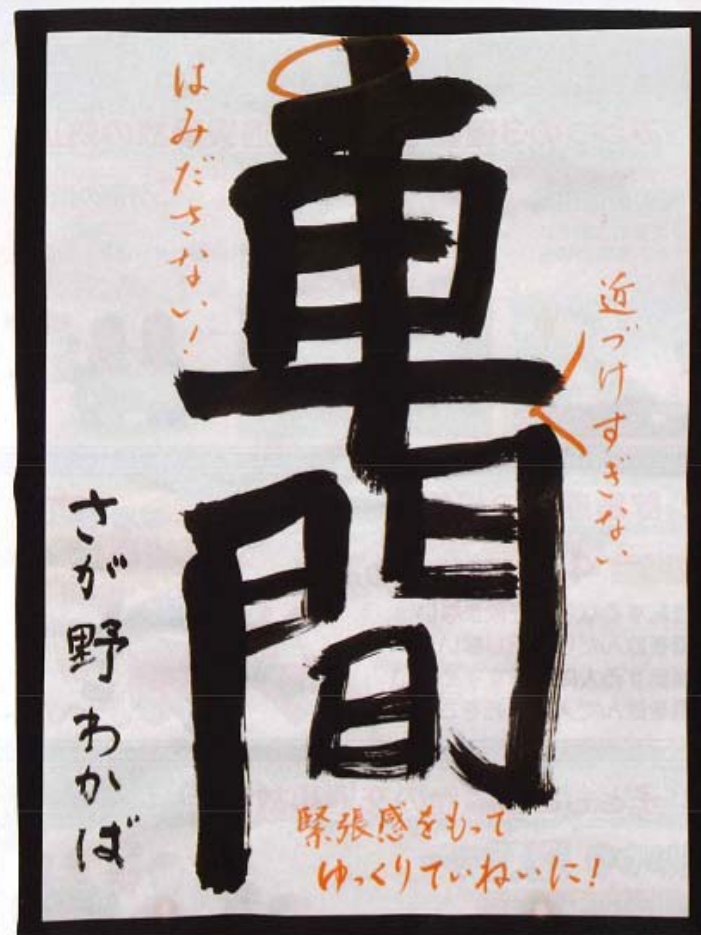 車間
はみださない!
近づけすぎない
さが野わかば
緊張感をもって
ゆっくりていねいに!